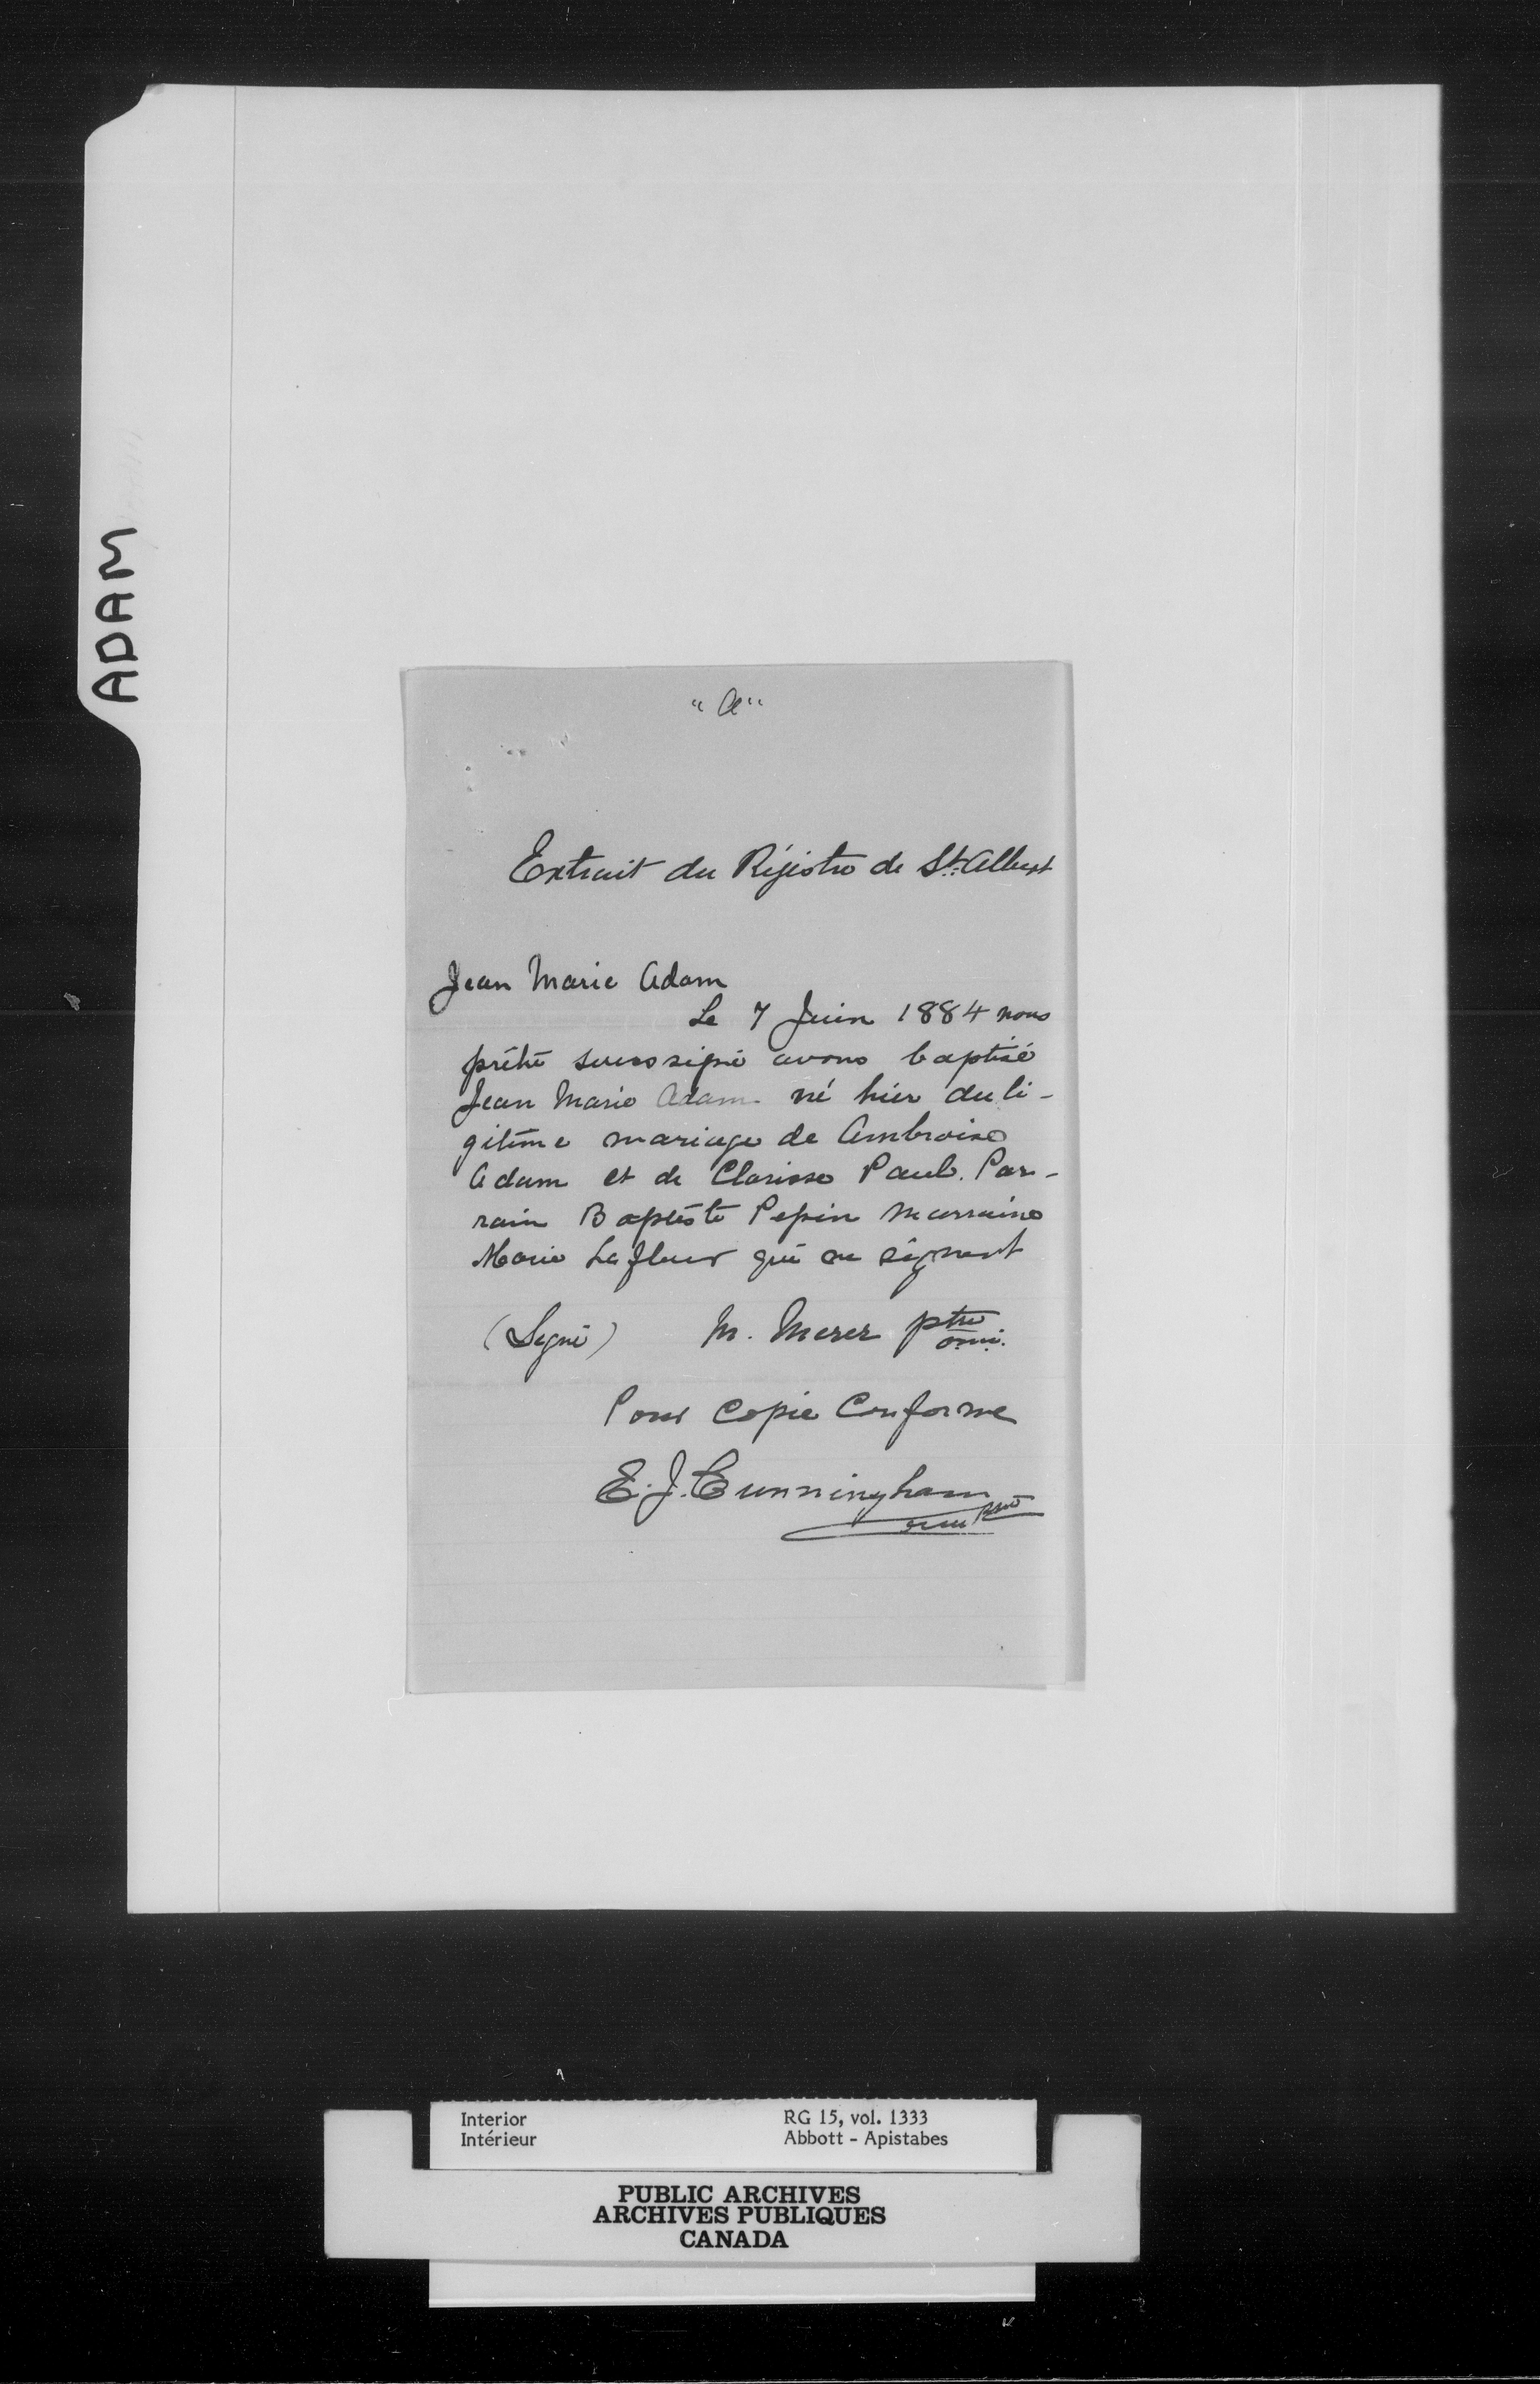 ADAM
"A"
Extrait du Régistre de St. Albert
Jean Marie Adam
Le 7 Juin 1884 nous
prêtre soussigné avons baptisé
Jean Marie Adam né hier du lé-
gitime mariage de Ambroise
Adam et de Clarisse Paul. Par-
rain Baptiste Pepin Marraine
Marie Lafleur qui ne signent
(Signé) M. Merer ptre
omi.
Pour Copie Conforme
E. J. Cunningham
omi ptre
Interior RG 15, vol. 1333
Intérieur Abbott - Apistabes
PUBLIC ARCHIVES
ARCHIVES PUBLIQUES
CANADA